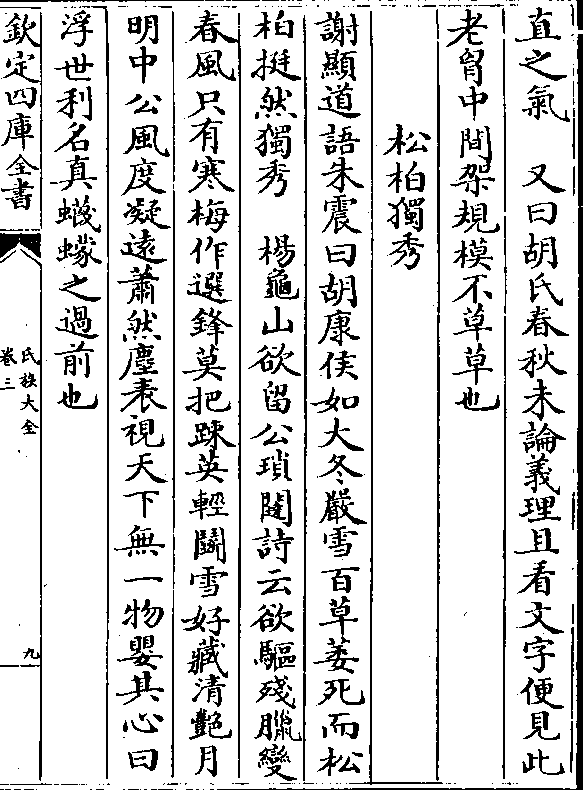 直之氣　又曰胡氏春秋未論義理且看文字便見此
老胷中間架規模不草草也
松柏獨秀
謝顯道語朱震曰胡康侯如大冬嚴雪百草萎死而松
柏挺然獨秀　楊龜山欲留公瑣闥詩云欲驅殘臘變
春風只有寒梅作選鋒莫把踈英輕鬭雪好藏清艶月
明中公風度凝遠蕭然塵表視天下無一物嬰其心曰
浮世利名真蠛蠓之過前也
欽定四庫全書
氏族大全
卷三
九